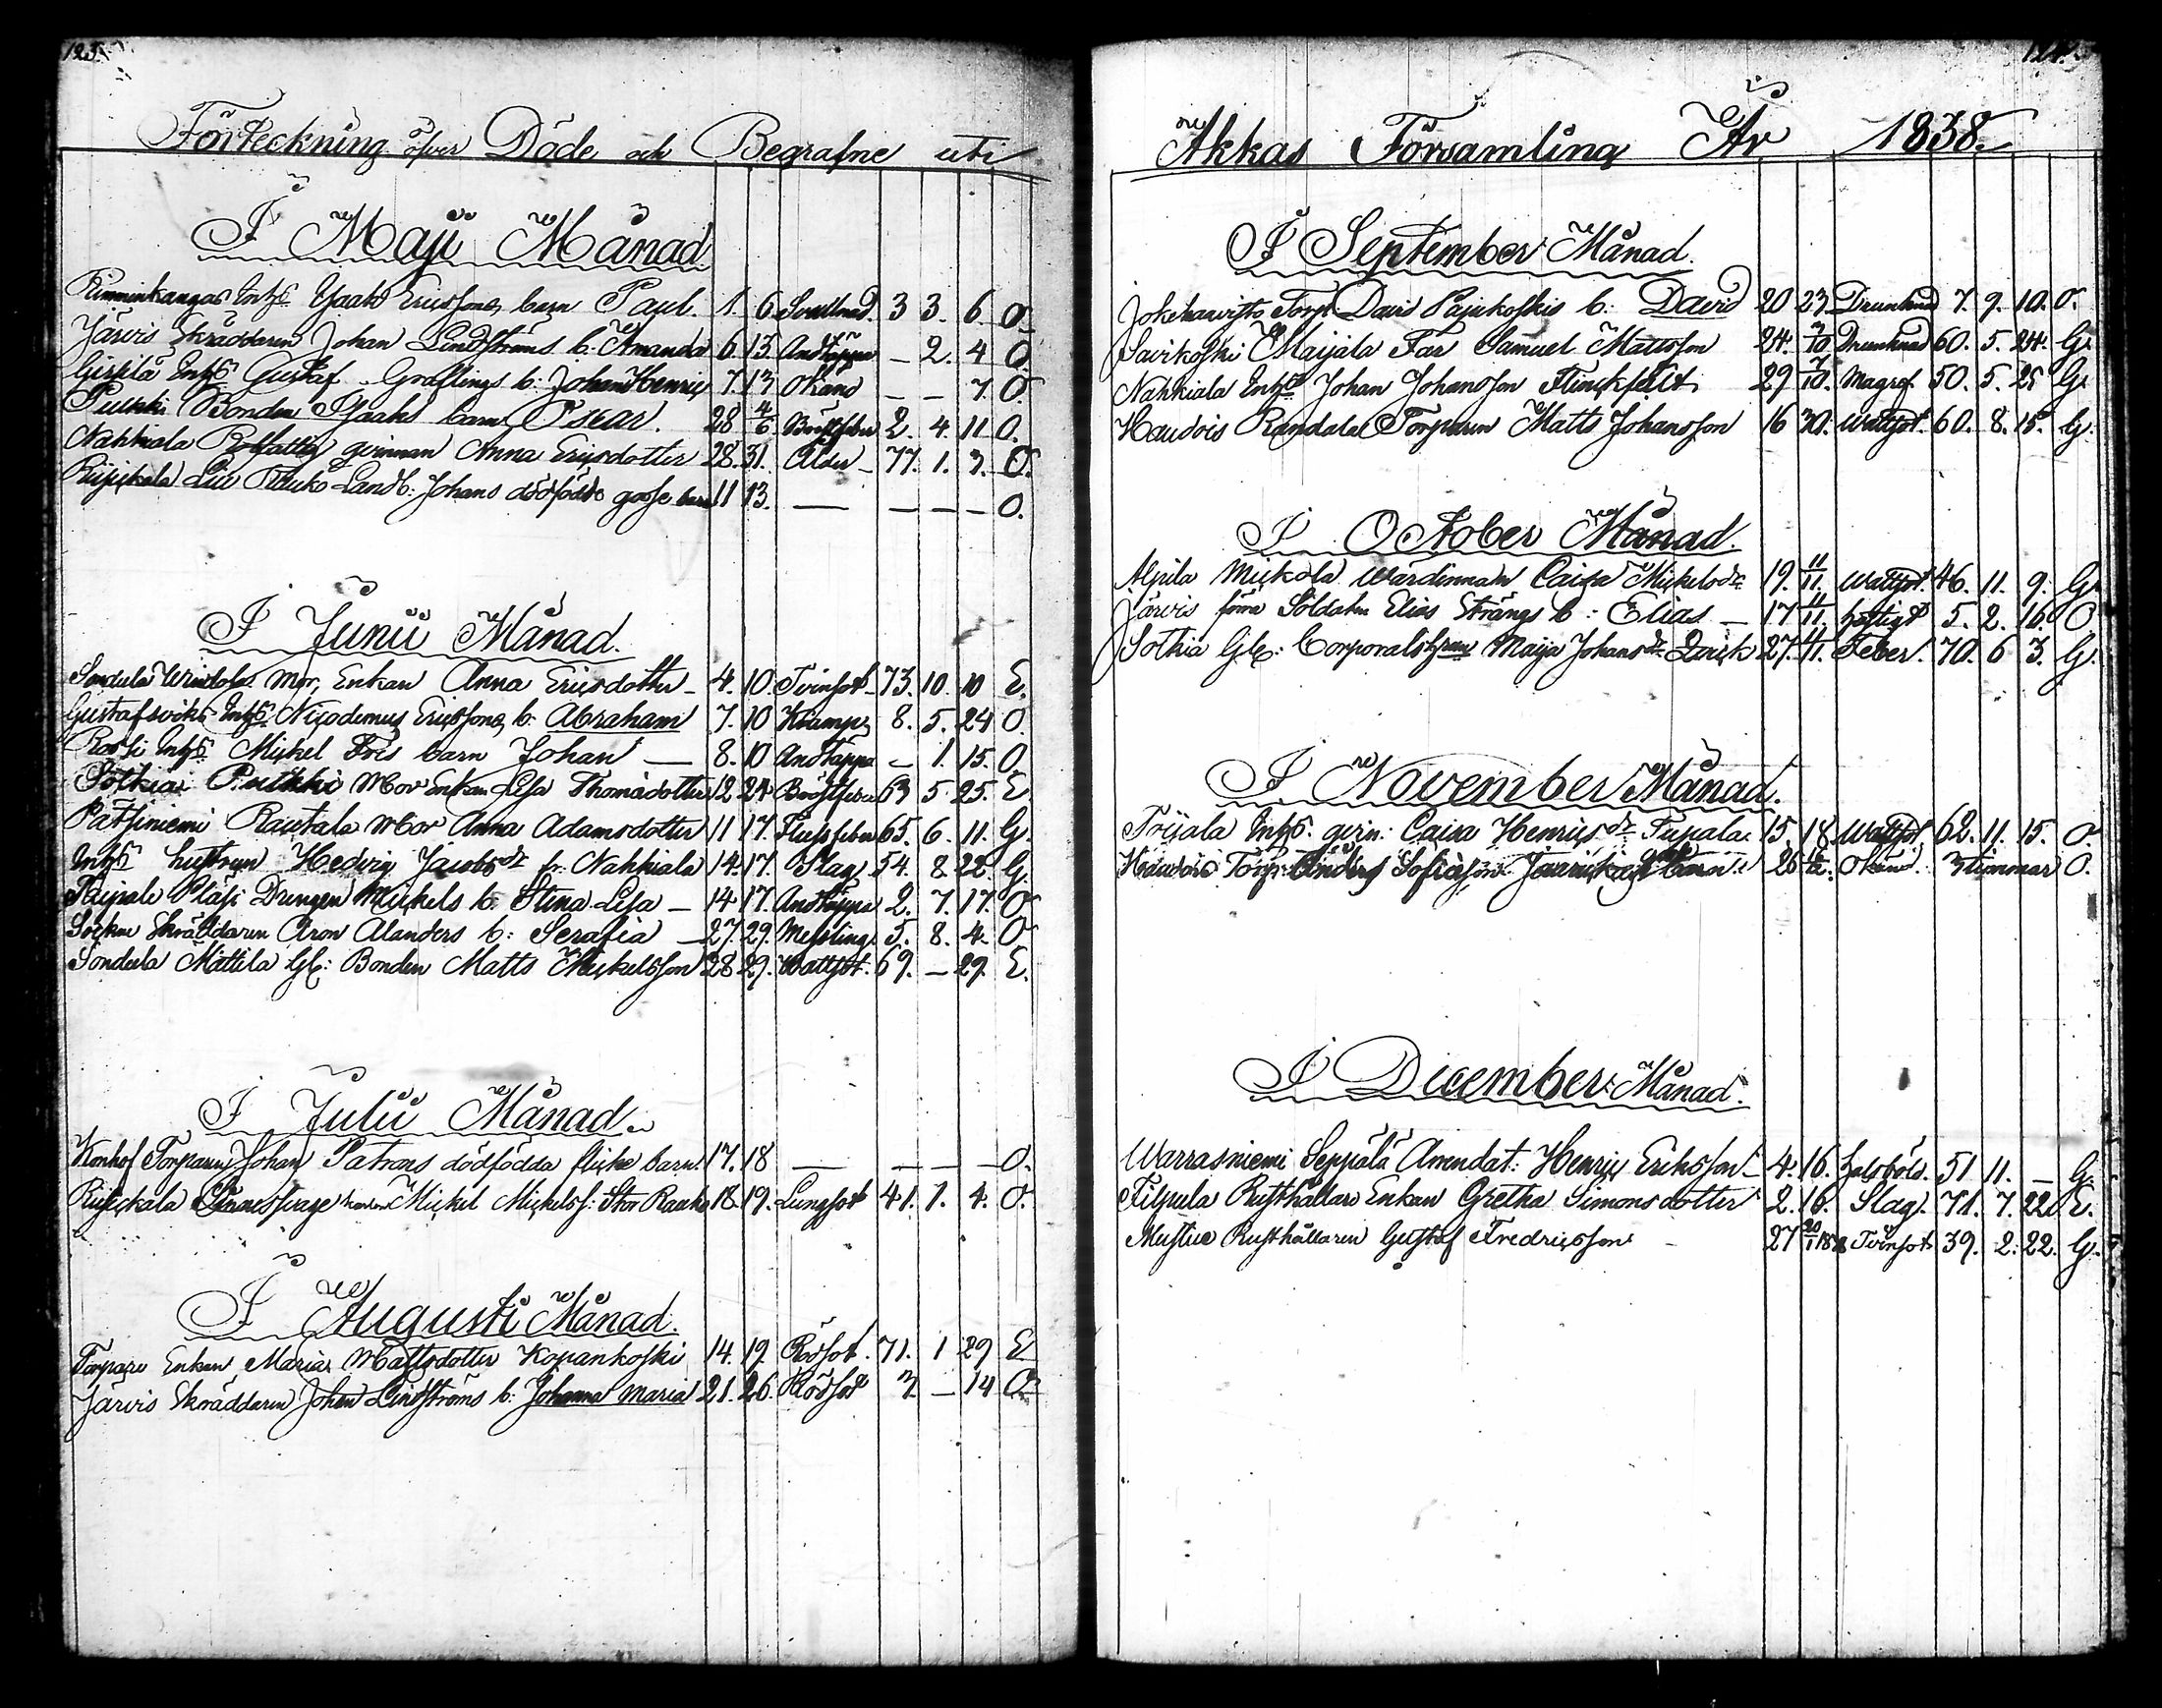 123.
Förteckning öfver Döde och Begrafne uti
I Maji Månad
Rimminkangas Inhs Isaak Ericssons barn Paul. 1. 6. 3 3. 6. O.
Järvis Skräddaren Johan Lindströms b: Amanda 6. 13. Andtäppa — 2. 4 O.
Inhs Gustaf Gräflings b: Johan Henric 7. 13 Okänd — — 7. O.
Pulkki Bonden Isaaks barn Oscar. 28 4/6 Bröstfeber 2. 4. 11 O.
Nahkiala Anna Ericsdotter 28. 31. Ålder — 77. 1. 3. O.
Landb: Johans dödfödde gosse barn 11 13. — — — — O.
I Junii Månad.
Mor, Enkan Anna Ericsdotter — 4. 10. Tvinsot — 73. 10. 10 E.
Gustafsviks Inhs Nicodemus Ericssons b: Abraham 7. 10 Kramp 8. 5. 24 O.
Inhs Mickel barn Johan — 8. 10 Andtäppa — 1. 15. O.
Sotkia Pulkki Mor Enkan Lisa Thomasdotter 12 24 Bröstfeber 63 5. 25. E
Patsiniemi Rautala Mor Anna Adamsdotter 11 17. 65. 6. 11. G.
Inhs hustrun Hedvig Jacobsdr fr. Nahkiala 14. 17. Slag 54. 8. 22. G.
Taipale Drengen Mickels b: Stina Lisa — 14 17. Andtäppa 2. 7. 17. O
Skräddaren Aron Alanders b: Serafia — 27. 29. Messling. 5. 8. 4. O
Mattila Gl: Bonden Matts Mickelsson 28. 29. Wattsot. 69. — 29. E.
I Julii Månad.
Torparen Johan dödfödda flicke barn. 17. 18 — — — — O.
Mickel Mickelss: 18. 19. Lungsot 41. 1. 4. O.
I Augusti Månad.
Torpare Enkan Maria Mattsdotter Kopankoski 14. 19. Rödsot. 71. 1 29 E
Järvis Skräddaren Johan Lindströms b: Johanna Maria 21. 26. Rödsot 3. — 14 O.
124.
Akkas Församling År 1838.
I September Månad.
Torp: David Pajukoskis b: David 20 23. Drunknad 7. 9. 10. O.
Savikoski Maijala Far Samuel Mattsson 24. 3/10 Drunknad 60. 5. 24. G.
Nahkiala Inhs Johan Johansson Flinckfelt 29 7/10. Magref. 50. 5. 25 G.
Haudois Randala Torparen Matts Johansson 16 30. Wattsot. 60. 8. 15. G.
I October Månad.
Mickola Wärdinnan Caisa Mickelsdr 19. 11/11. Wattsot. 46. 11. 9. G.
Järvis förra Soldaten Elias Strängs b: Elias — 17 11/11. 5. 2. 16. O
Sotkia Gl: Corporalshfrun Maija Johansdr Quick 27. 4/11. Feber. 70. 6 3. G.
I November Månad.
Toijala Inhs. Caisa Henricsdr 15. 18. Wattsot. 62. 11. 15. O.
Haudois Torp: Anders barn 26 Okänd. 3 timmar O.
I December Månad.
Warrasniemi Seppälä Arrendat: Henric Ericsson — 4. 16. Halsböld. 51 11. — G.
Filpula Rusthållare Enkan Gretha Simonsdotter 2. 16. Slag. 71. 7. 22. E.
Mustue Rusthållaren Gustaf Fredricsson — 27 Tvinsot 39. 2. 22. G.